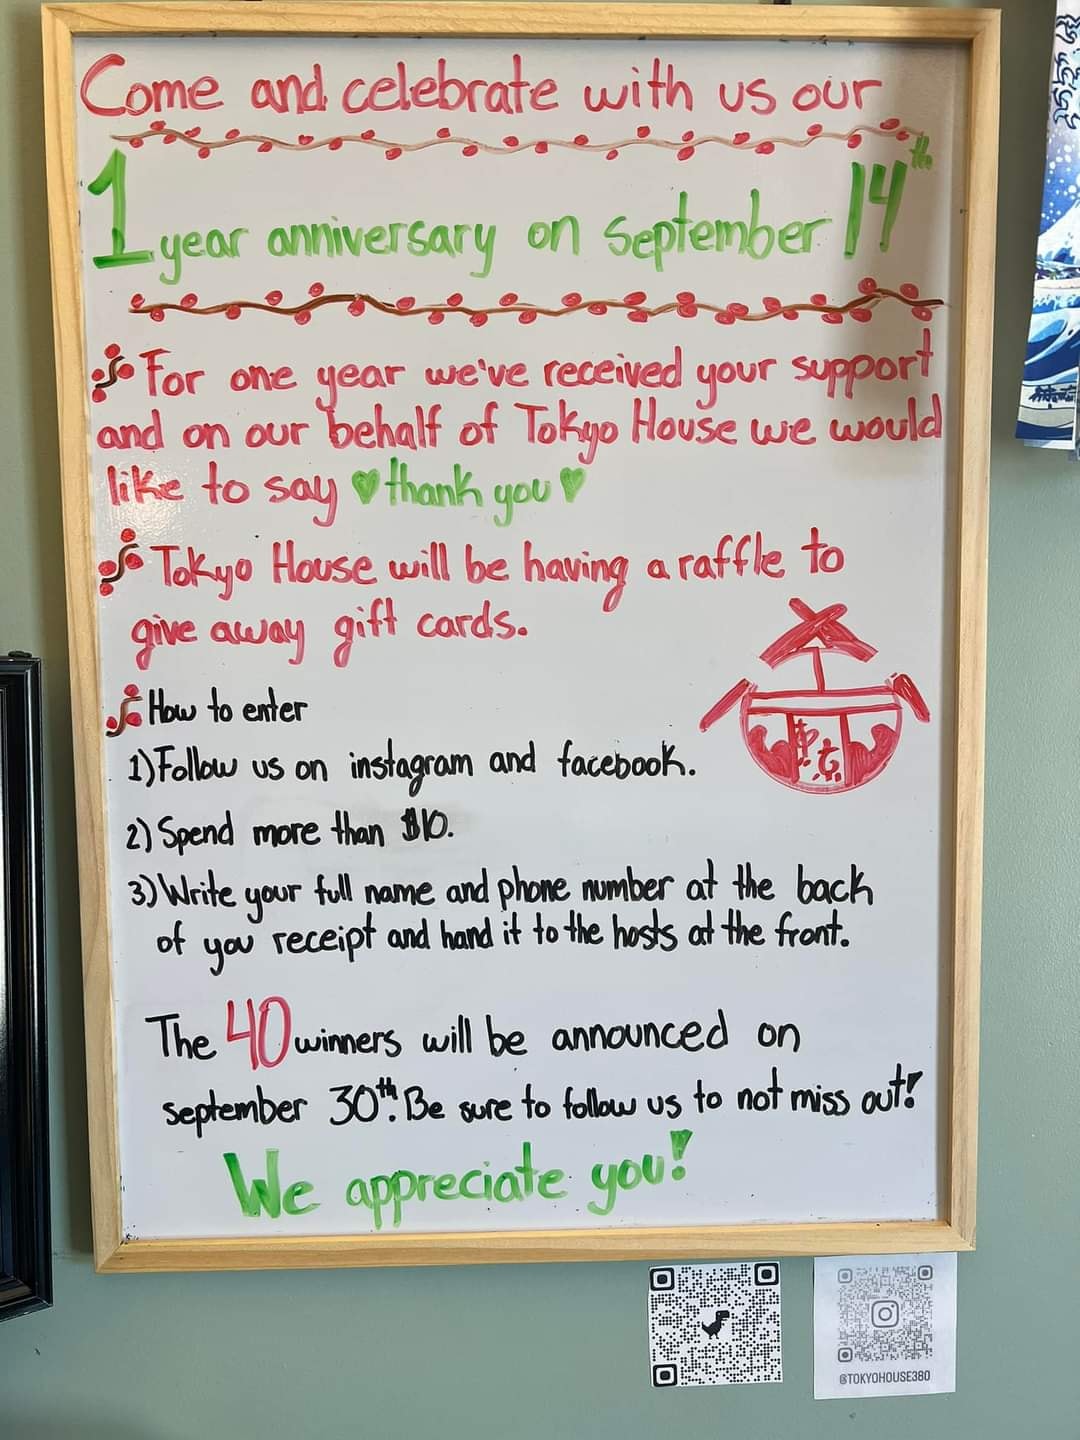 Come and celebrate with us our
1 year anniversary on September 14th
For one year we've received your support
and on our behalf of Tokyo House we would
like to say ♥thank you♥
Tokyo House will be having a raffle to
give away gift cards.
How to enter
1) Follow us on instagram and facebook.
2) Spend more than $10.
3) Write your full name and phone number at the back
of you receipt and hand it to the hosts at the front.
The 40 winners will be announced on
september 30th. Be sure to follow us to not miss out!
We appreciate you!
@TOKYOHOUSE380